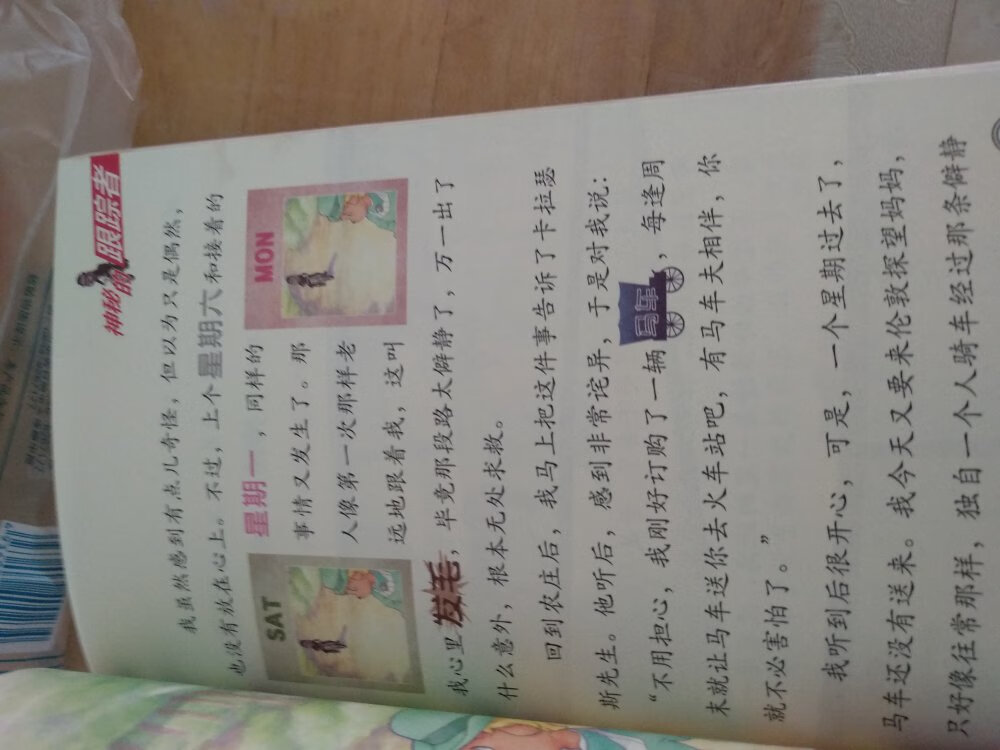 神秘的跟踪者
我虽然感到有点儿奇怪，但以为只是偶然，
也没有放在心上。不过，上个星期六和接着的
SAT
MON
星期一，同样的
事情又发生了。那
人像第一次那样老
远地跟着我，这叫
我心里发毛，毕竟那段路太僻静了，万一出了
什么意外，根本无处求救。
回到农庄后，我马上把这件事告诉了卡拉瑟
斯先生。他听后，感到非常诧异，于是对我说：
“不用担心，我刚好订购了一辆马车，每逢周
末就让马车送你去火车站吧，有马车夫相伴，你
就不必害怕了。”
我听到后很开心，可是，一个星期过去了，
马车还没有送来。我今天又要来伦敦探望妈妈，
只好像往常那样，独自一个人骑车经过那条僻静